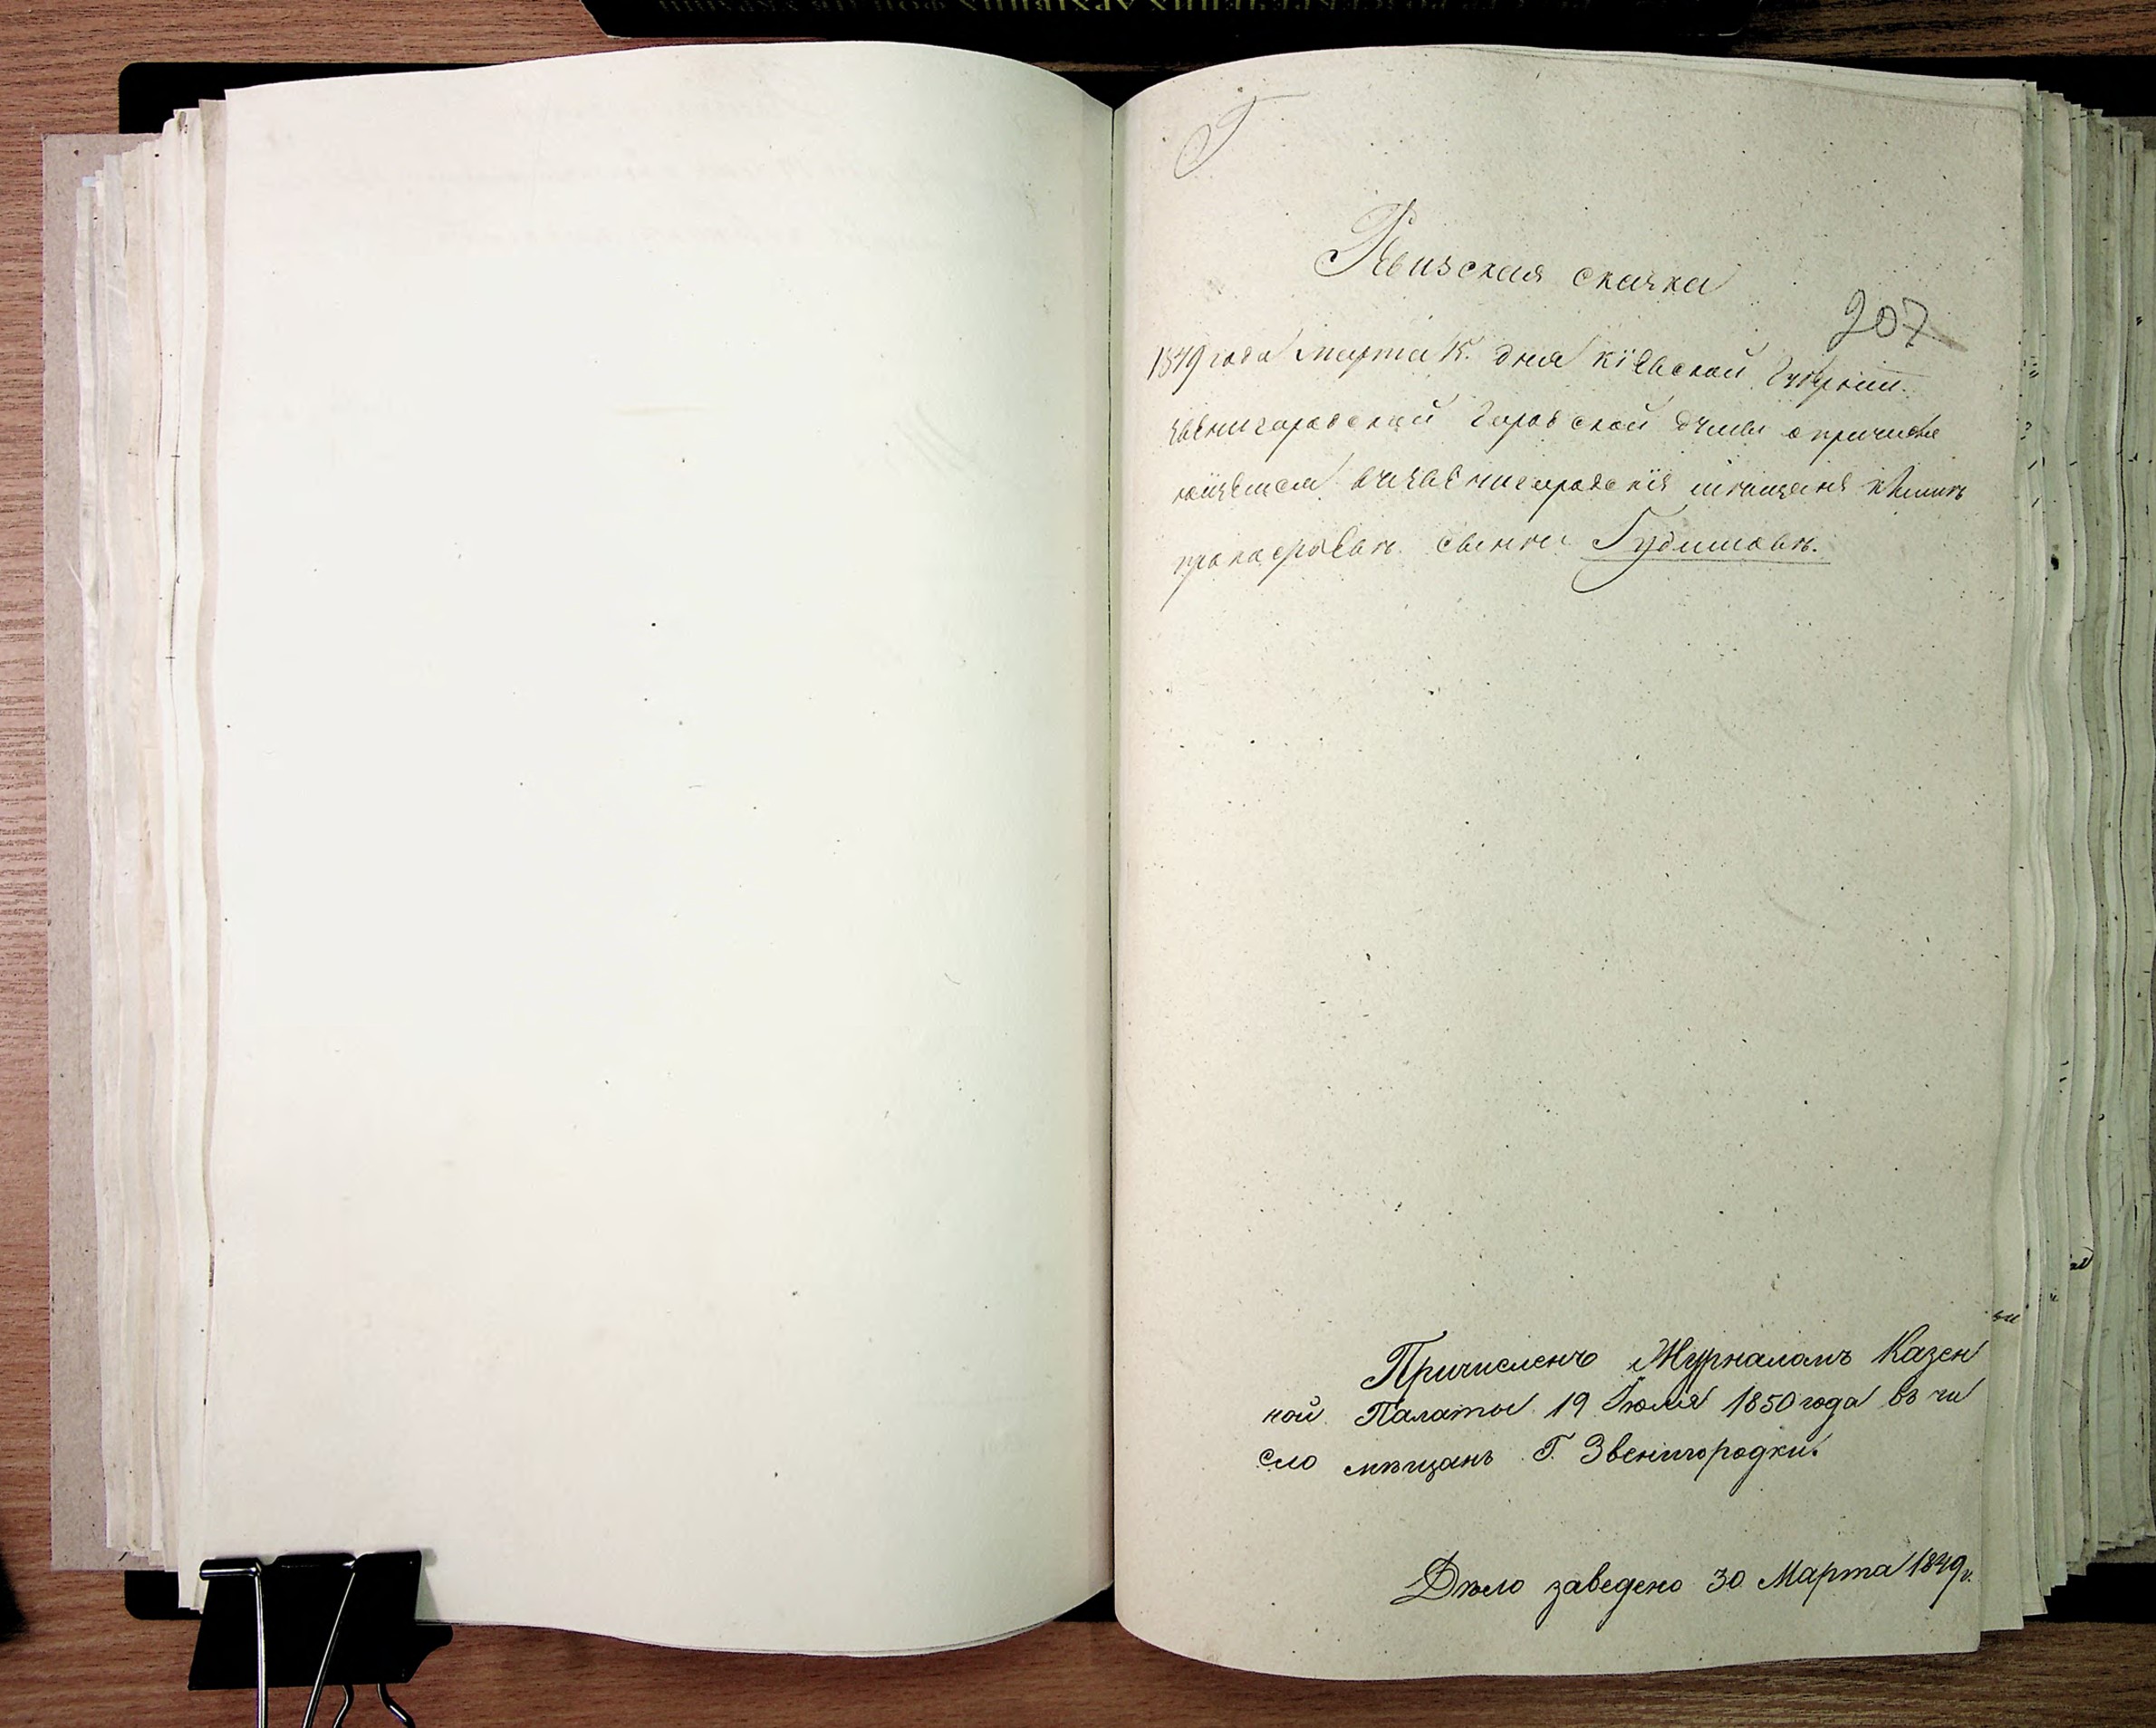 Г
Ревизская скаска
207
1849 года марта 15. дня Кіевской Губерніи.
звенигородской городской думы о причисле
въ звенигородскіе мещане
сынъ Гудимовъ.
Причислено Журналомъ Казен
ной Палаты 19 Іюля 1850 года въ чи
сло мѣщанъ Г. Звенигородки.
Дѣло заведено 30 Марта 1849 г.